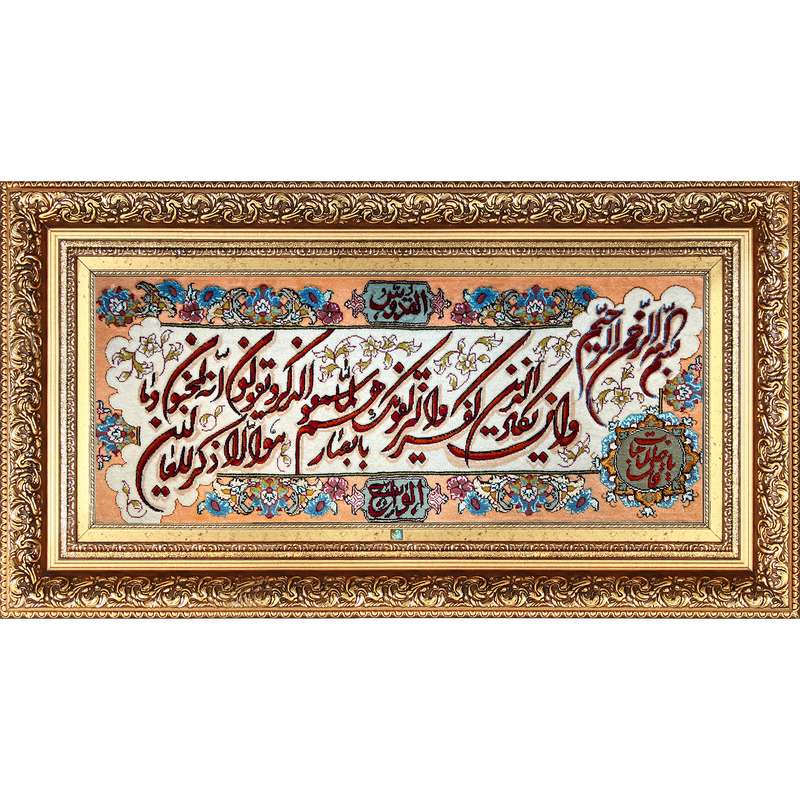 القدوس
بسم الله الرحمن الرحیم
وان یکاد الذین کفروا لیزلقونک بابصارهم لما سمعوا الذکر و یقولون انه لمجنون وما
هو الا ذکر للعالمین
یا قاضی الحاجات